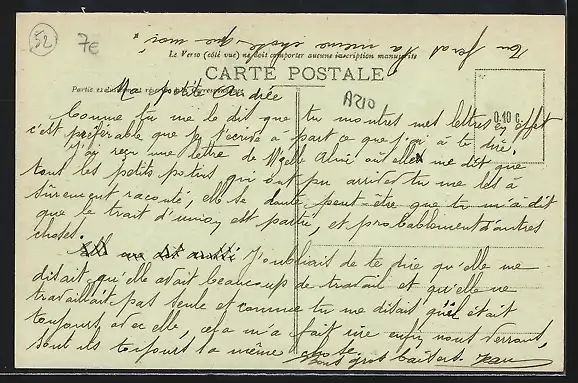 52
7e
Tu feras la même chose que moi.
Le Verso (côté vue) ne doit comporter aucune inscription manuscrite
CARTE POSTALE
Partie exclusivement réservée
Ma petite Andrée
A210
0.40
Comme tu me le dit que tu montres mes lettres en effet
c'est préférable que je t'écrive à part ce que j'ai à te dire.
J'ai reçu une lettre de Melle Aline où elle me dit que
tout les petits potins qui ont pu arriver tu me les à
sûrement raconté, elle se doute peut-être que tu m'a dit
que le trait d'union est partie, et probablement d'autres
choses.
Elle me dit aussi J'oubliais de te dire qu'elle me
disait qu'elle avait beaucoup de travail et qu'elle ne
travaillait pas seule et comme tu me disait qu'il était
toujours avec elle, cela m'a fait rire enfin nous verrons,
sont ils toujours la même chose.
Bons gros baisers. Jean